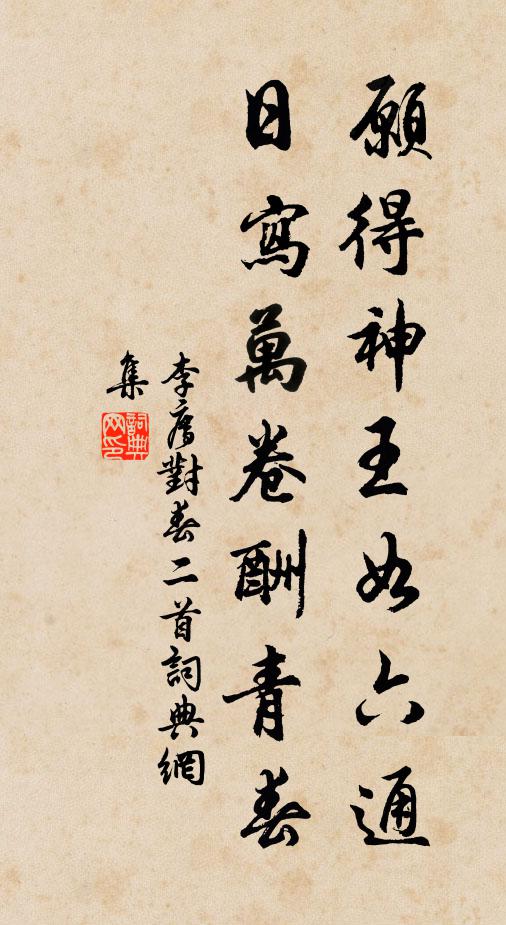 願得神王如六通
日寫萬卷酬青春
李廌對春二首詞典網
集
詞典
網印